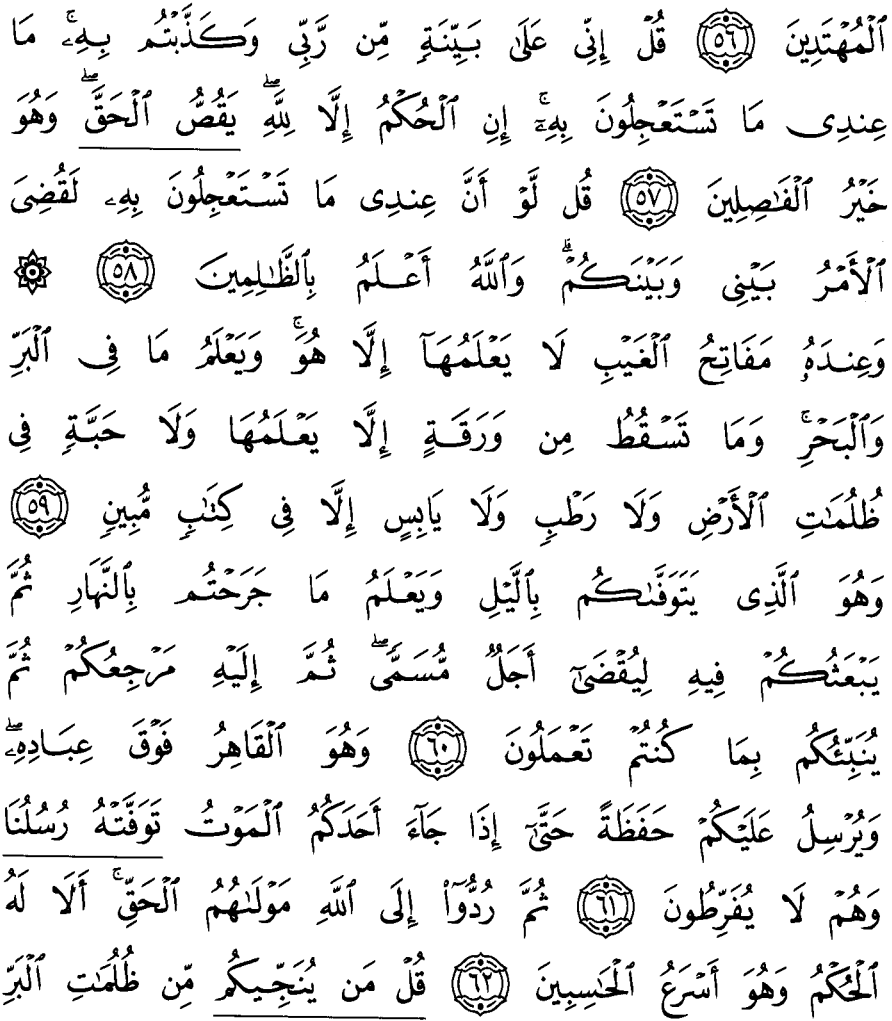 ٱلْمُهْتَدِينَ ٥٦ قُلْ إِنِّى عَلَىٰ بَيِّنَةٍ مِّن رَّبِّى وَكَذَّبْتُم بِهِۦ ۚ مَا
عِندِى مَا تَسْتَعْجِلُونَ بِهِۦٓ ۚ إِنِ ٱلْحُكْمُ إِلَّا لِلَّهِ ۖ يَقُصُّ ٱلْحَقَّ ۖ وَهُوَ
خَيْرُ ٱلْفَٰصِلِينَ ٥٧ قُل لَّوْ أَنَّ عِندِى مَا تَسْتَعْجِلُونَ بِهِۦ لَقُضِىَ
ٱلْأَمْرُ بَيْنِى وَبَيْنَكُمْ ۗ وَٱللَّهُ أَعْلَمُ بِٱلظَّٰلِمِينَ ٥٨ ۞
وَعِندَهُۥ مَفَاتِحُ ٱلْغَيْبِ لَا يَعْلَمُهَآ إِلَّا هُوَ ۚ وَيَعْلَمُ مَا فِى ٱلْبَرِّ
وَٱلْبَحْرِ ۚ وَمَا تَسْقُطُ مِن وَرَقَةٍ إِلَّا يَعْلَمُهَا وَلَا حَبَّةٍ فِى
ظُلُمَٰتِ ٱلْأَرْضِ وَلَا رَطْبٍ وَلَا يَابِسٍ إِلَّا فِى كِتَٰبٍ مُّبِينٍ ٥٩
وَهُوَ ٱلَّذِى يَتَوَفَّىٰكُم بِٱلَّيْلِ وَيَعْلَمُ مَا جَرَحْتُم بِٱلنَّهَارِ ثُمَّ
يَبْعَثُكُمْ فِيهِ لِيُقْضَىٰٓ أَجَلٌ مُّسَمًّى ۖ ثُمَّ إِلَيْهِ مَرْجِعُكُمْ ثُمَّ
يُنَبِّئُكُم بِمَا كُنتُمْ تَعْمَلُونَ ٦٠ وَهُوَ ٱلْقَاهِرُ فَوْقَ عِبَادِهِۦ ۖ
وَيُرْسِلُ عَلَيْكُمْ حَفَظَةً حَتَّىٰٓ إِذَا جَآءَ أَحَدَكُمُ ٱلْمَوْتُ تَوَفَّتْهُ رُسُلُنَا
وَهُمْ لَا يُفَرِّطُونَ ٦١ ثُمَّ رُدُّوٓا۟ إِلَى ٱللَّهِ مَوْلَىٰهُمُ ٱلْحَقِّ ۚ أَلَا لَهُ
ٱلْحُكْمُ وَهُوَ أَسْرَعُ ٱلْحَٰسِبِينَ ٦٢ قُلْ مَن يُنَجِّيكُم مِّن ظُلُمَٰتِ ٱلْبَرِّ